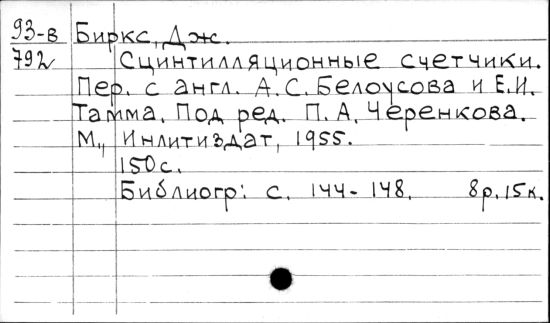 93-в Биркс, Дж.
792 Сцинтилляционные счетчики.
Пер. с англ. А.С. Белоусова и Е.И.
Тамма. Под ред. П.А. Черенкова.
М., Инлитиздат, 1955.
150 с.
Библиогр: с. 144-148. 8р.15к.